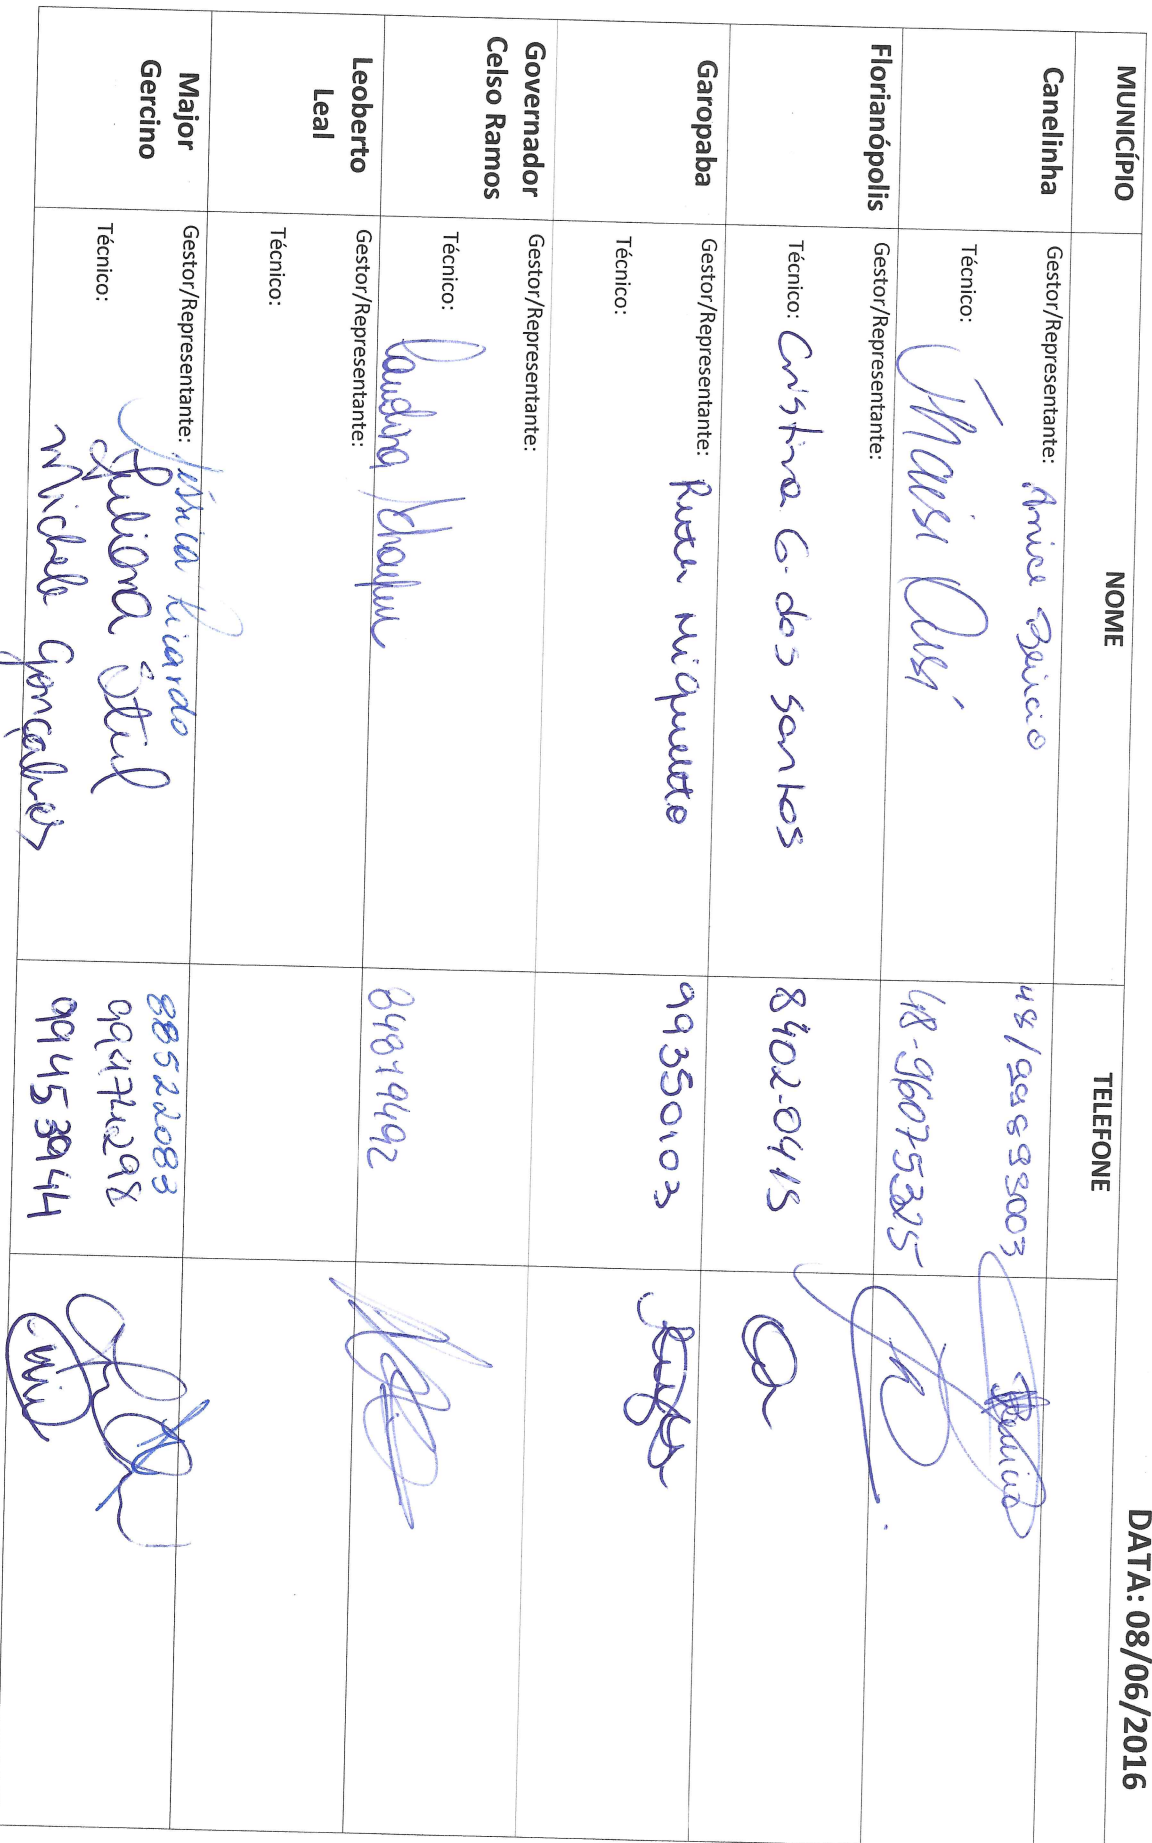 DATA: 08/06/2016
MUNICÍPIO NOME TELEFONE
Canelinha
Gestor/Representante: Anice Benicio 48/99993003
Técnico: Thaisi 48-96075325
Florianópolis
Gestor/Representante:
Técnico: Cristina G. dos Santos 8402-0415
Garopaba
Gestor/Representante: Ruth Miqueletto 99350103
Técnico:
Governador
Celso Ramos
Gestor/Representante:
Técnico: 84879492
Leoberto
Leal
Gestor/Representante:
Técnico:
Major
Gercino
Gestor/Representante: Jéssica Ricardo 88522083
Técnico: Juliana
Michele Gonçalves 99453944